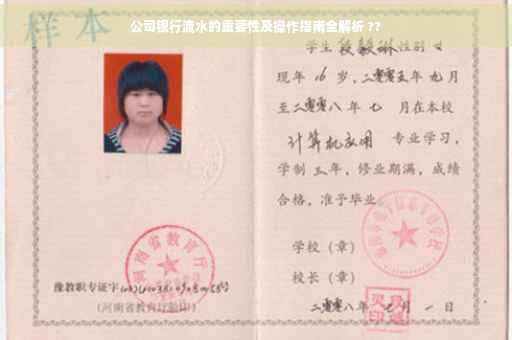 公司银行流水的重要性及操作指南全解析 ??
样本
学生 段毅琳 性别
现年 16 岁，二零零五年 九 月
至二零零八年 七 月在本校
计算机应用 专业学习，
学制 三 年，修业期满，成绩
合格，准予毕业
学校（章）
校长（章）
二零零八年 七 月 一 日
河南省教育厅
豫教职专证字
（河南省教育厅验印）